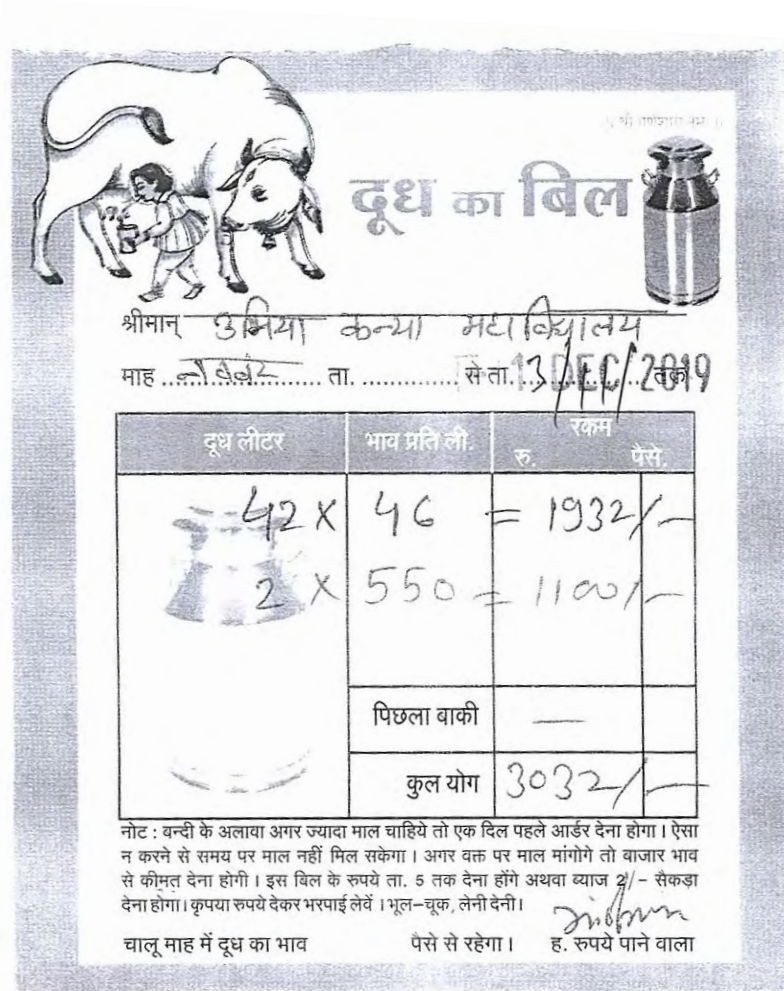 दूध का बिल
श्रीमान् उमिया कन्या महाविद्यालय
माह नवंबर ता. .............. से ता. 13/11/2019 तक
दूध लीटर भाव प्रति ली. रकम
रु. पैसे.
42 × 46 = 1932/-
2 × 550 = 1100/-
पिछला बाकी —
कुल योग 3032/-
नोट : वन्दी के अलावा अगर ज्यादा माल चाहिये तो एक दिल पहले आर्डर देना होगा । ऐसा
न करने से समय पर माल नहीं मिल सकेगा । अगर वक्त पर माल मांगोगे तो वाजार भाव
से कीमत देना होगी । इस बिल के रुपये ता. 5 तक देना होंगे अथवा ब्याज 2/- सैकड़ा
देना होगा। कृपया रुपये देकर भरपाई लेवें । भूल-चूक, लेनी देनी।
चालू माह में दूध का भाव पैसे से रहेगा । ह. रुपये पाने वाला